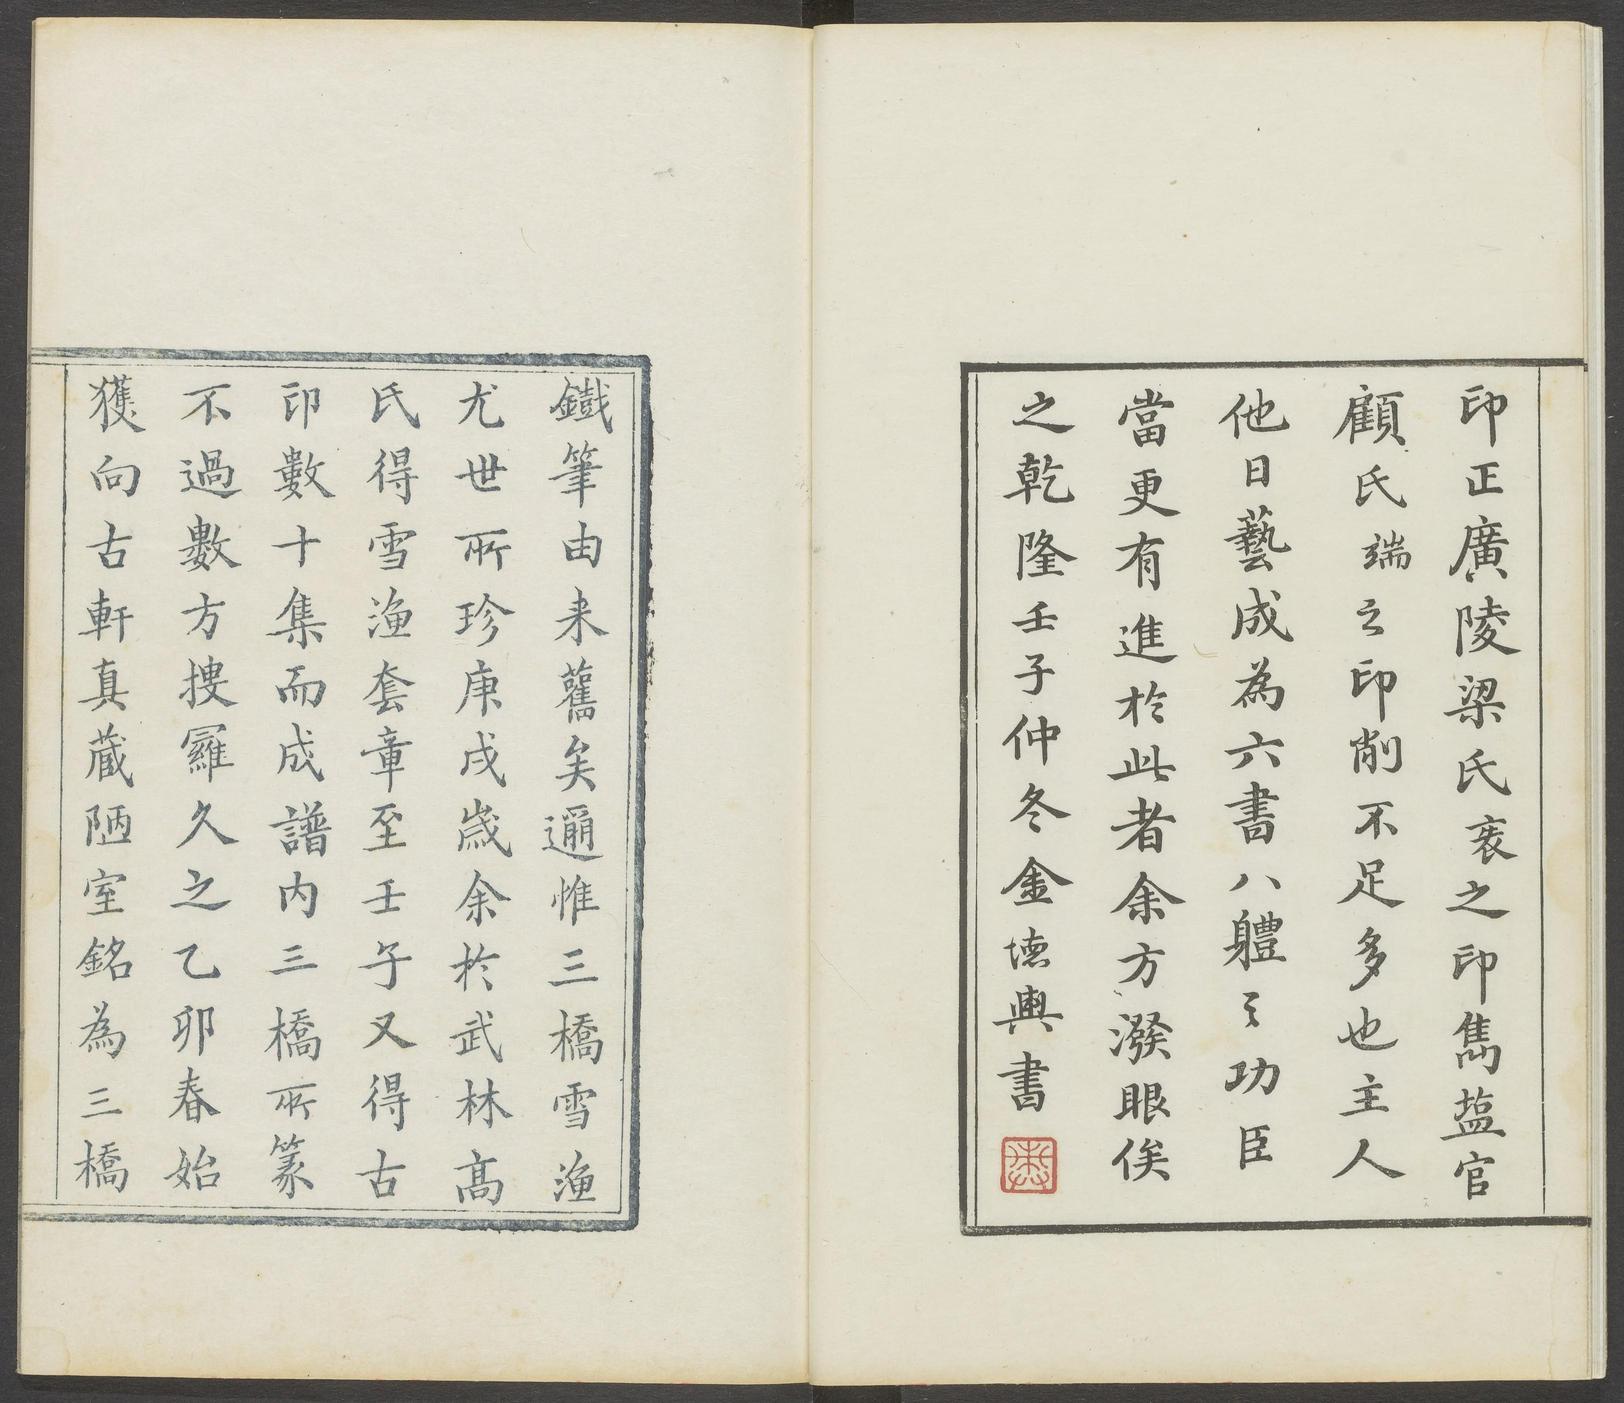 印正廣陵梁氏袠之印雋塩官
顧氏端之印削不足多也主人
他日藝成為六書八體之功臣
當更有進於此者余方潑眼俟
之乾隆壬子仲冬金徳輿書
鐵筆由来舊矣邇惟三橋雪漁
尤世所珍庚戌歲余於武林高
氏得雪漁套章至壬子又得古
印數十集而成譜内三橋所篆
不過數方搜羅久之乙卯春始
獲向古軒真藏陋室銘為三橋